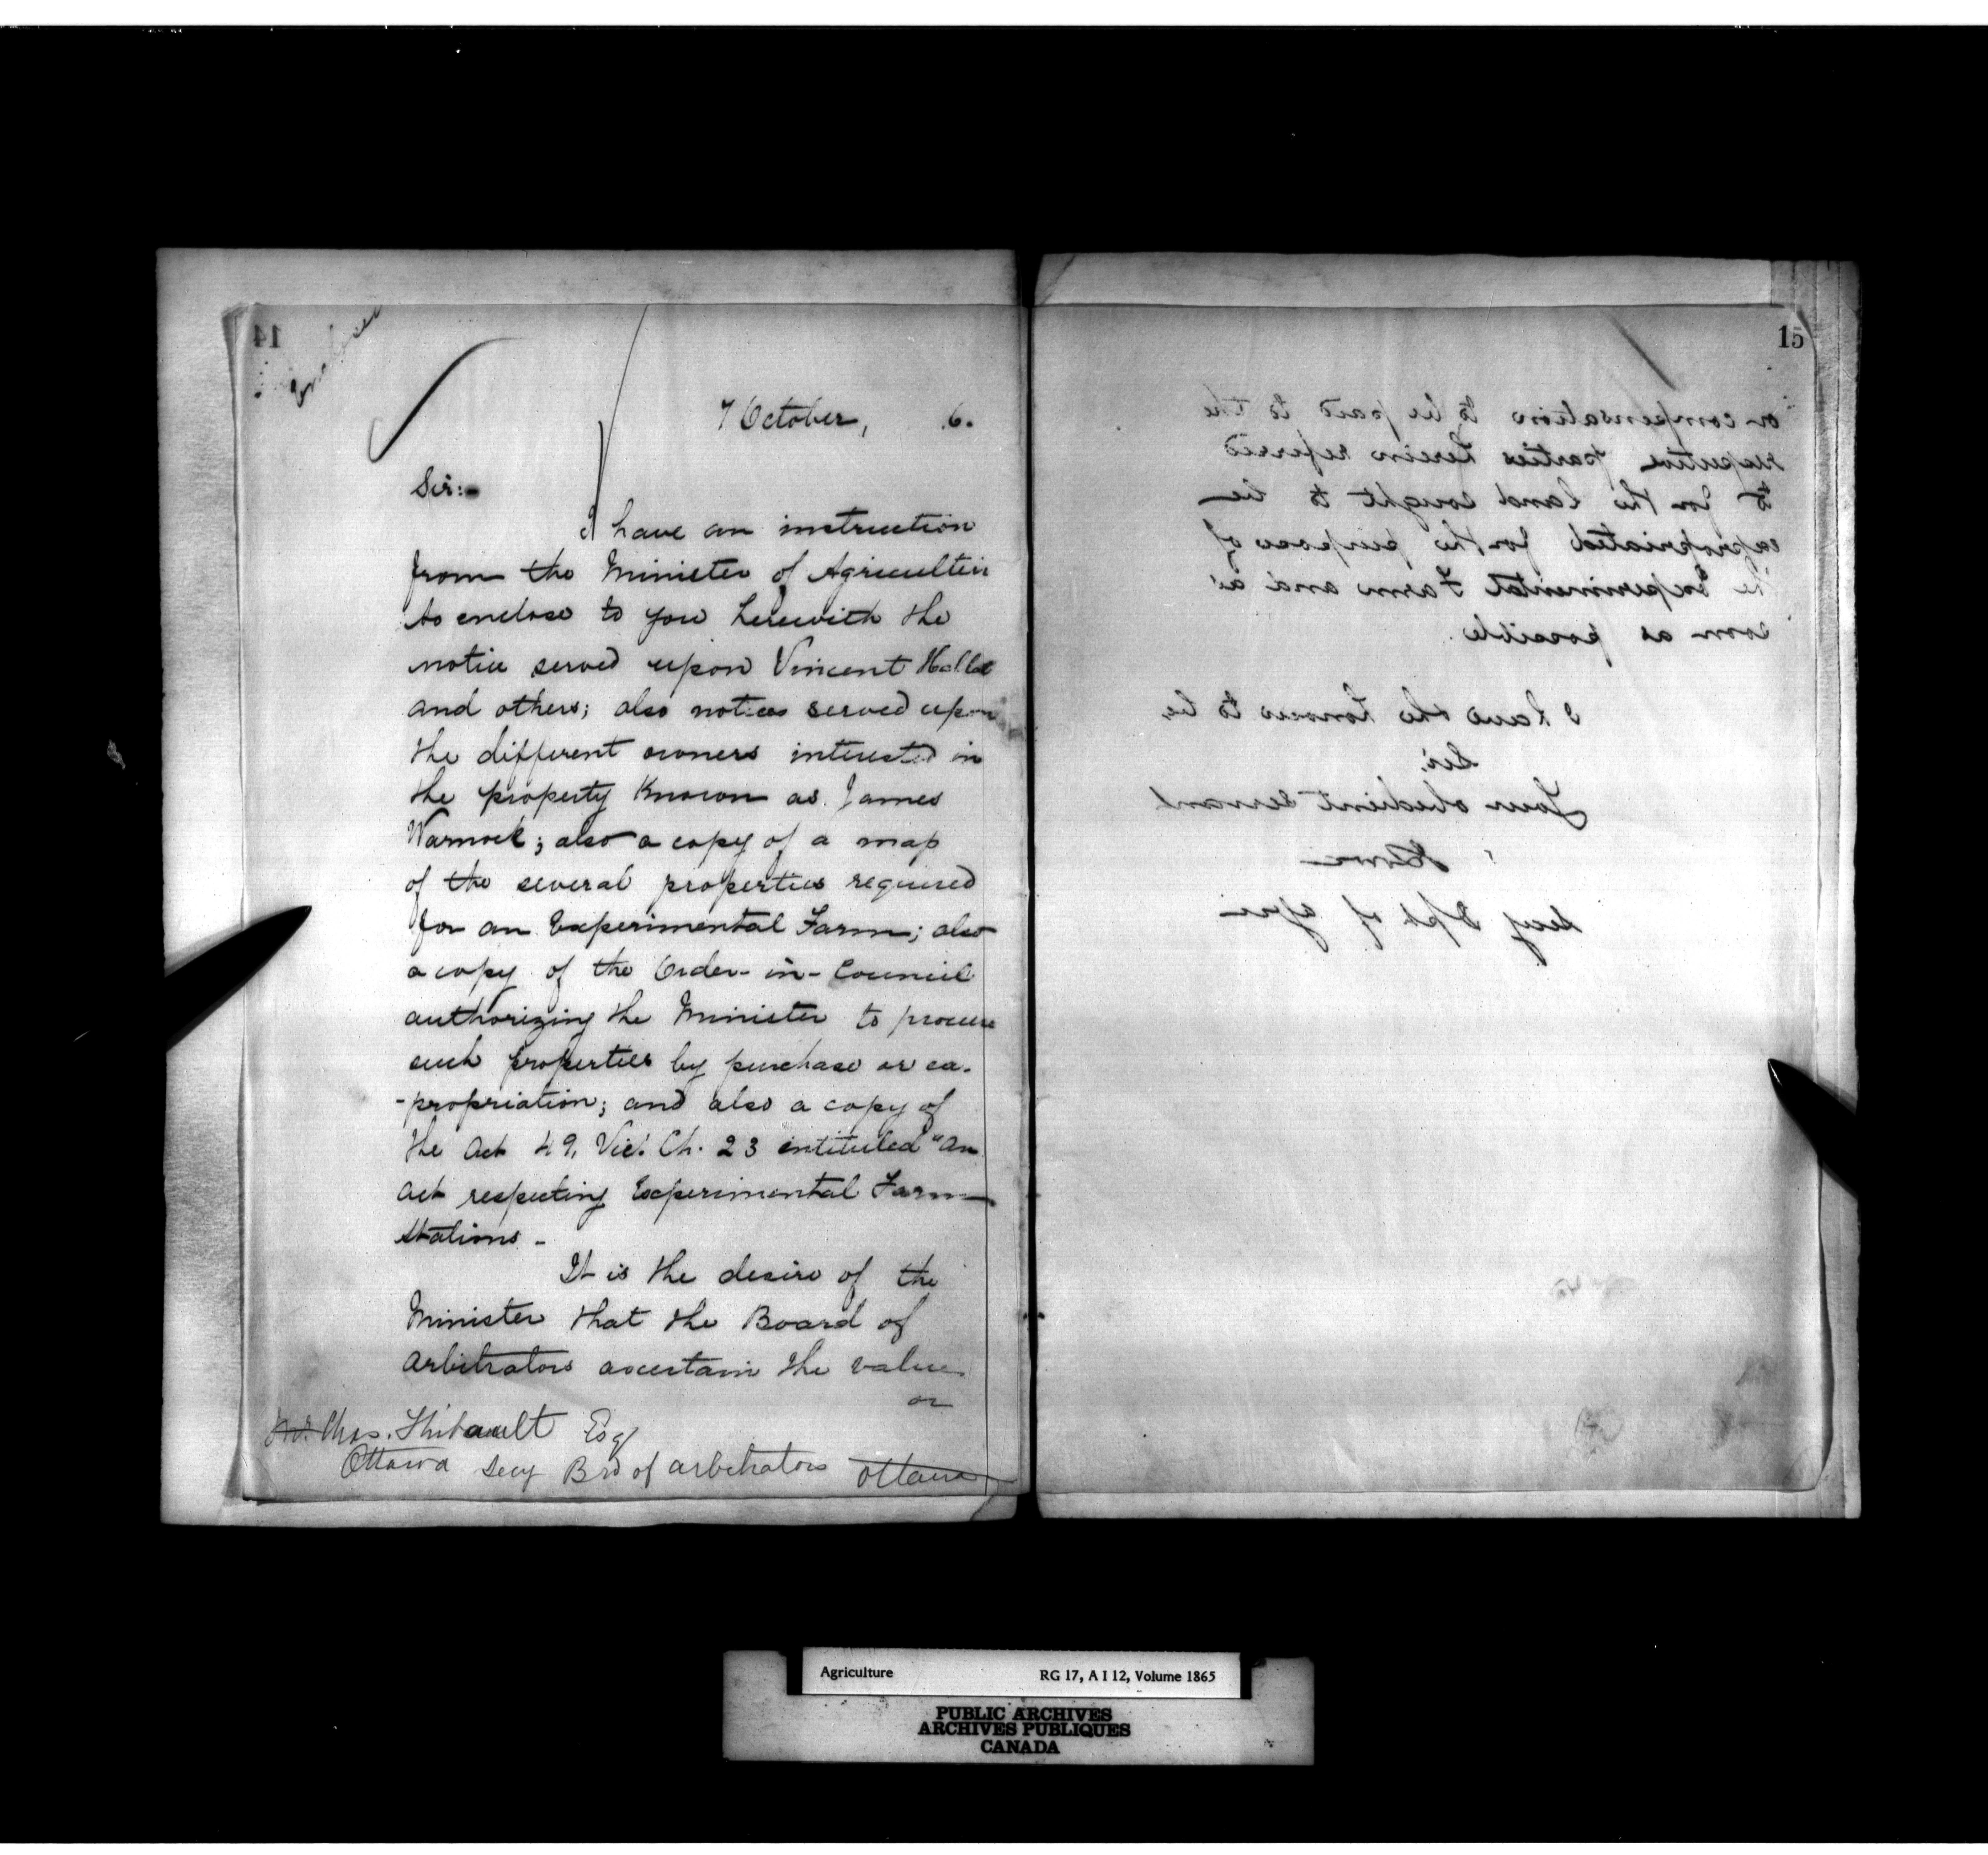 14
7 October, 6.
Sir:-
I have an instruction
from the Minister of Agricultur
to enclose to you herewith the
notice served upon Vincent
and others; also notices served upon
the different owners interested in
the property Known as James
Warnock; also a copy of a map
of the several properties required
for an Experimental Farm; also
a copy of the Order-in-Council
authorizing the Minister to procure
such properties by purchase or ex-
-propriation; and also a copy of
the Act 49, Vic! Ch. 23 intituled "An
Act respecting Experimental Farm
Stations -
It is the desire of the
Minister that the Board of
Arbitrators ascertain the value
or
Chas. Thibault Esq
Ottawa Secy Brd of arbitrators Ottawa
15
or compensation to be paid to the
respective parties herein referred
to for the land sought to be
expropriated for the purposes of
the Experimental Farm and as
soon as possible.
I have the honour to be
Sir,
Your obedient servant
Secy Dpt of Agri
Agriculture RG 17, A I 12, Volume 1865
PUBLIC ARCHIVES
ARCHIVES PUBLIQUES
CANADA